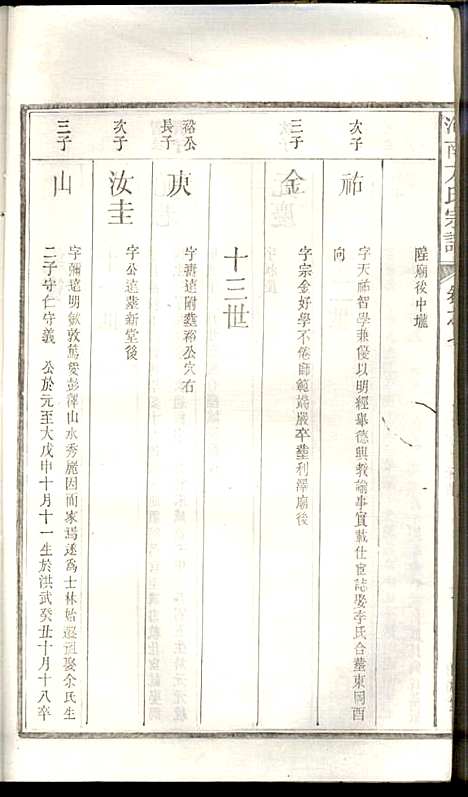 隍廟後中壠
次子
祐
字天祐智學兼優以明經舉德興教諭事實載仕宦誌娶李氏合塟東岡酉
向
三子
金
字宗金好學不倦師範端嚴卒塟利澤廟後
十三世
裕公
長子
庚
字 遠附塟裕公穴右
次子
汝圭
字公遠塟新堂後
三子
山
字 遠明敏敦篤愛彭澤山水秀麗因而家焉遂為士林始遷祖娶余氏生
二子守仁守義 公於元至大戊申十月十一生於洪武癸丑十月十八卒